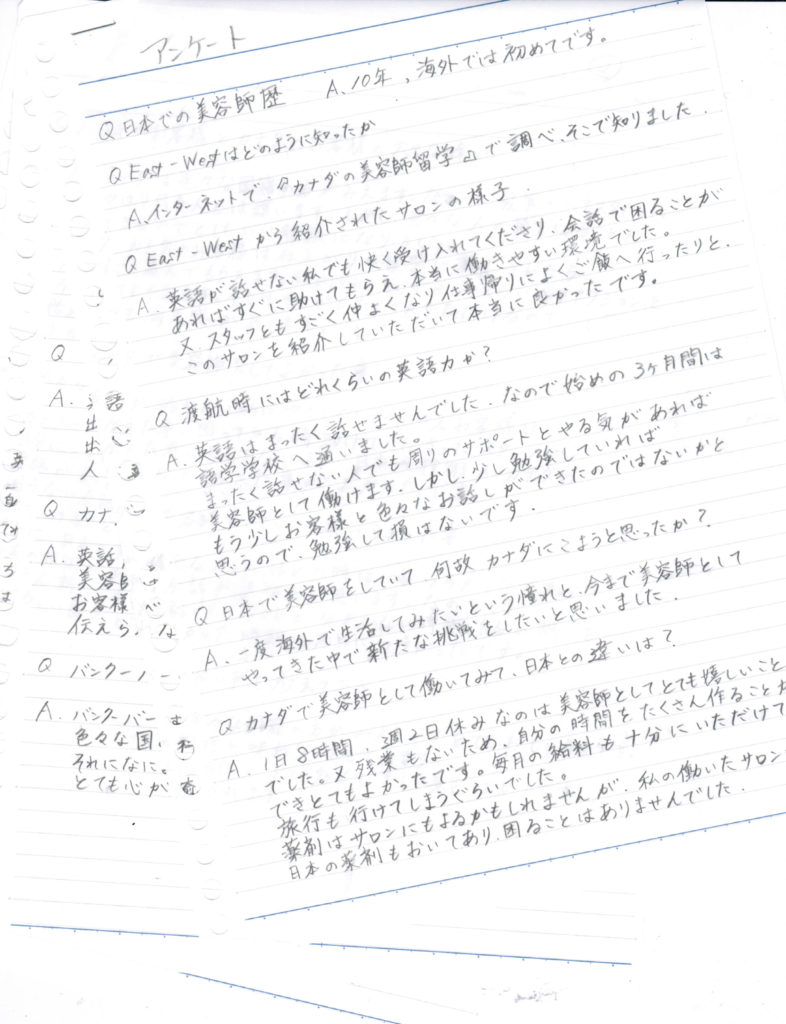 アンケート
Q 日本での美容師歴 A、10年、海外では初めてです。
Q East-Westはどのように知ったか
A、インターネットで、『カナダの美容師留学』で調べ、そこで知りました.
Q East-West から紹介されたサロンの様子.
A. 英語が話せない私でも快く受け入れてくださり、会話で困ることが
あればすぐに助けてもらえ、本当に働きやすい環境でした。
又、スタッフともすごく仲よくなり仕事帰りによくご飯へ行ったりと、
このサロンを紹介していただいて本当に良かったです。
Q 渡航時にはどれくらいの英語力か?
A. 英語はまったく話せませんでした、なので始めの3ヶ月間は
語学学校へ通いました。
まったく話せない人でも周りのサポートとやる気があれば
美容師として働けます、しかし、少し勉強していれば
もう少しお客様と色々なお話しができたのではないかと
思うので、勉強して損はないです.
Q 日本で美容師をしていて 何故 カナダにこようと思ったか?
A. 一度海外で生活してみたいという憧れと、今まで美容師として
やってきた中で新たな挑戦をしたいと思いました.
Q カナダで美容師として働いてみて、日本との違いは?
A. 1日8時間、週2日休みなのは美容師としてとても嬉しいこと
でした。又残業もないため、自分の時間をたくさん作ることが
できとてもよかったです。毎月の給料も十分にいただけて
旅行も行けてしまうぐらいでした。
薬剤はサロンにもよるかもしれませんが、私の働いたサロン
日本の薬剤もおいてあり、困ることはありませんでした.
Q
A. 語
出
出
人
Q カナ
A. 英語
美容
お客様
伝えら
Q バンクーバー
A. バンクーバー
色々な国
それになに
とても心が